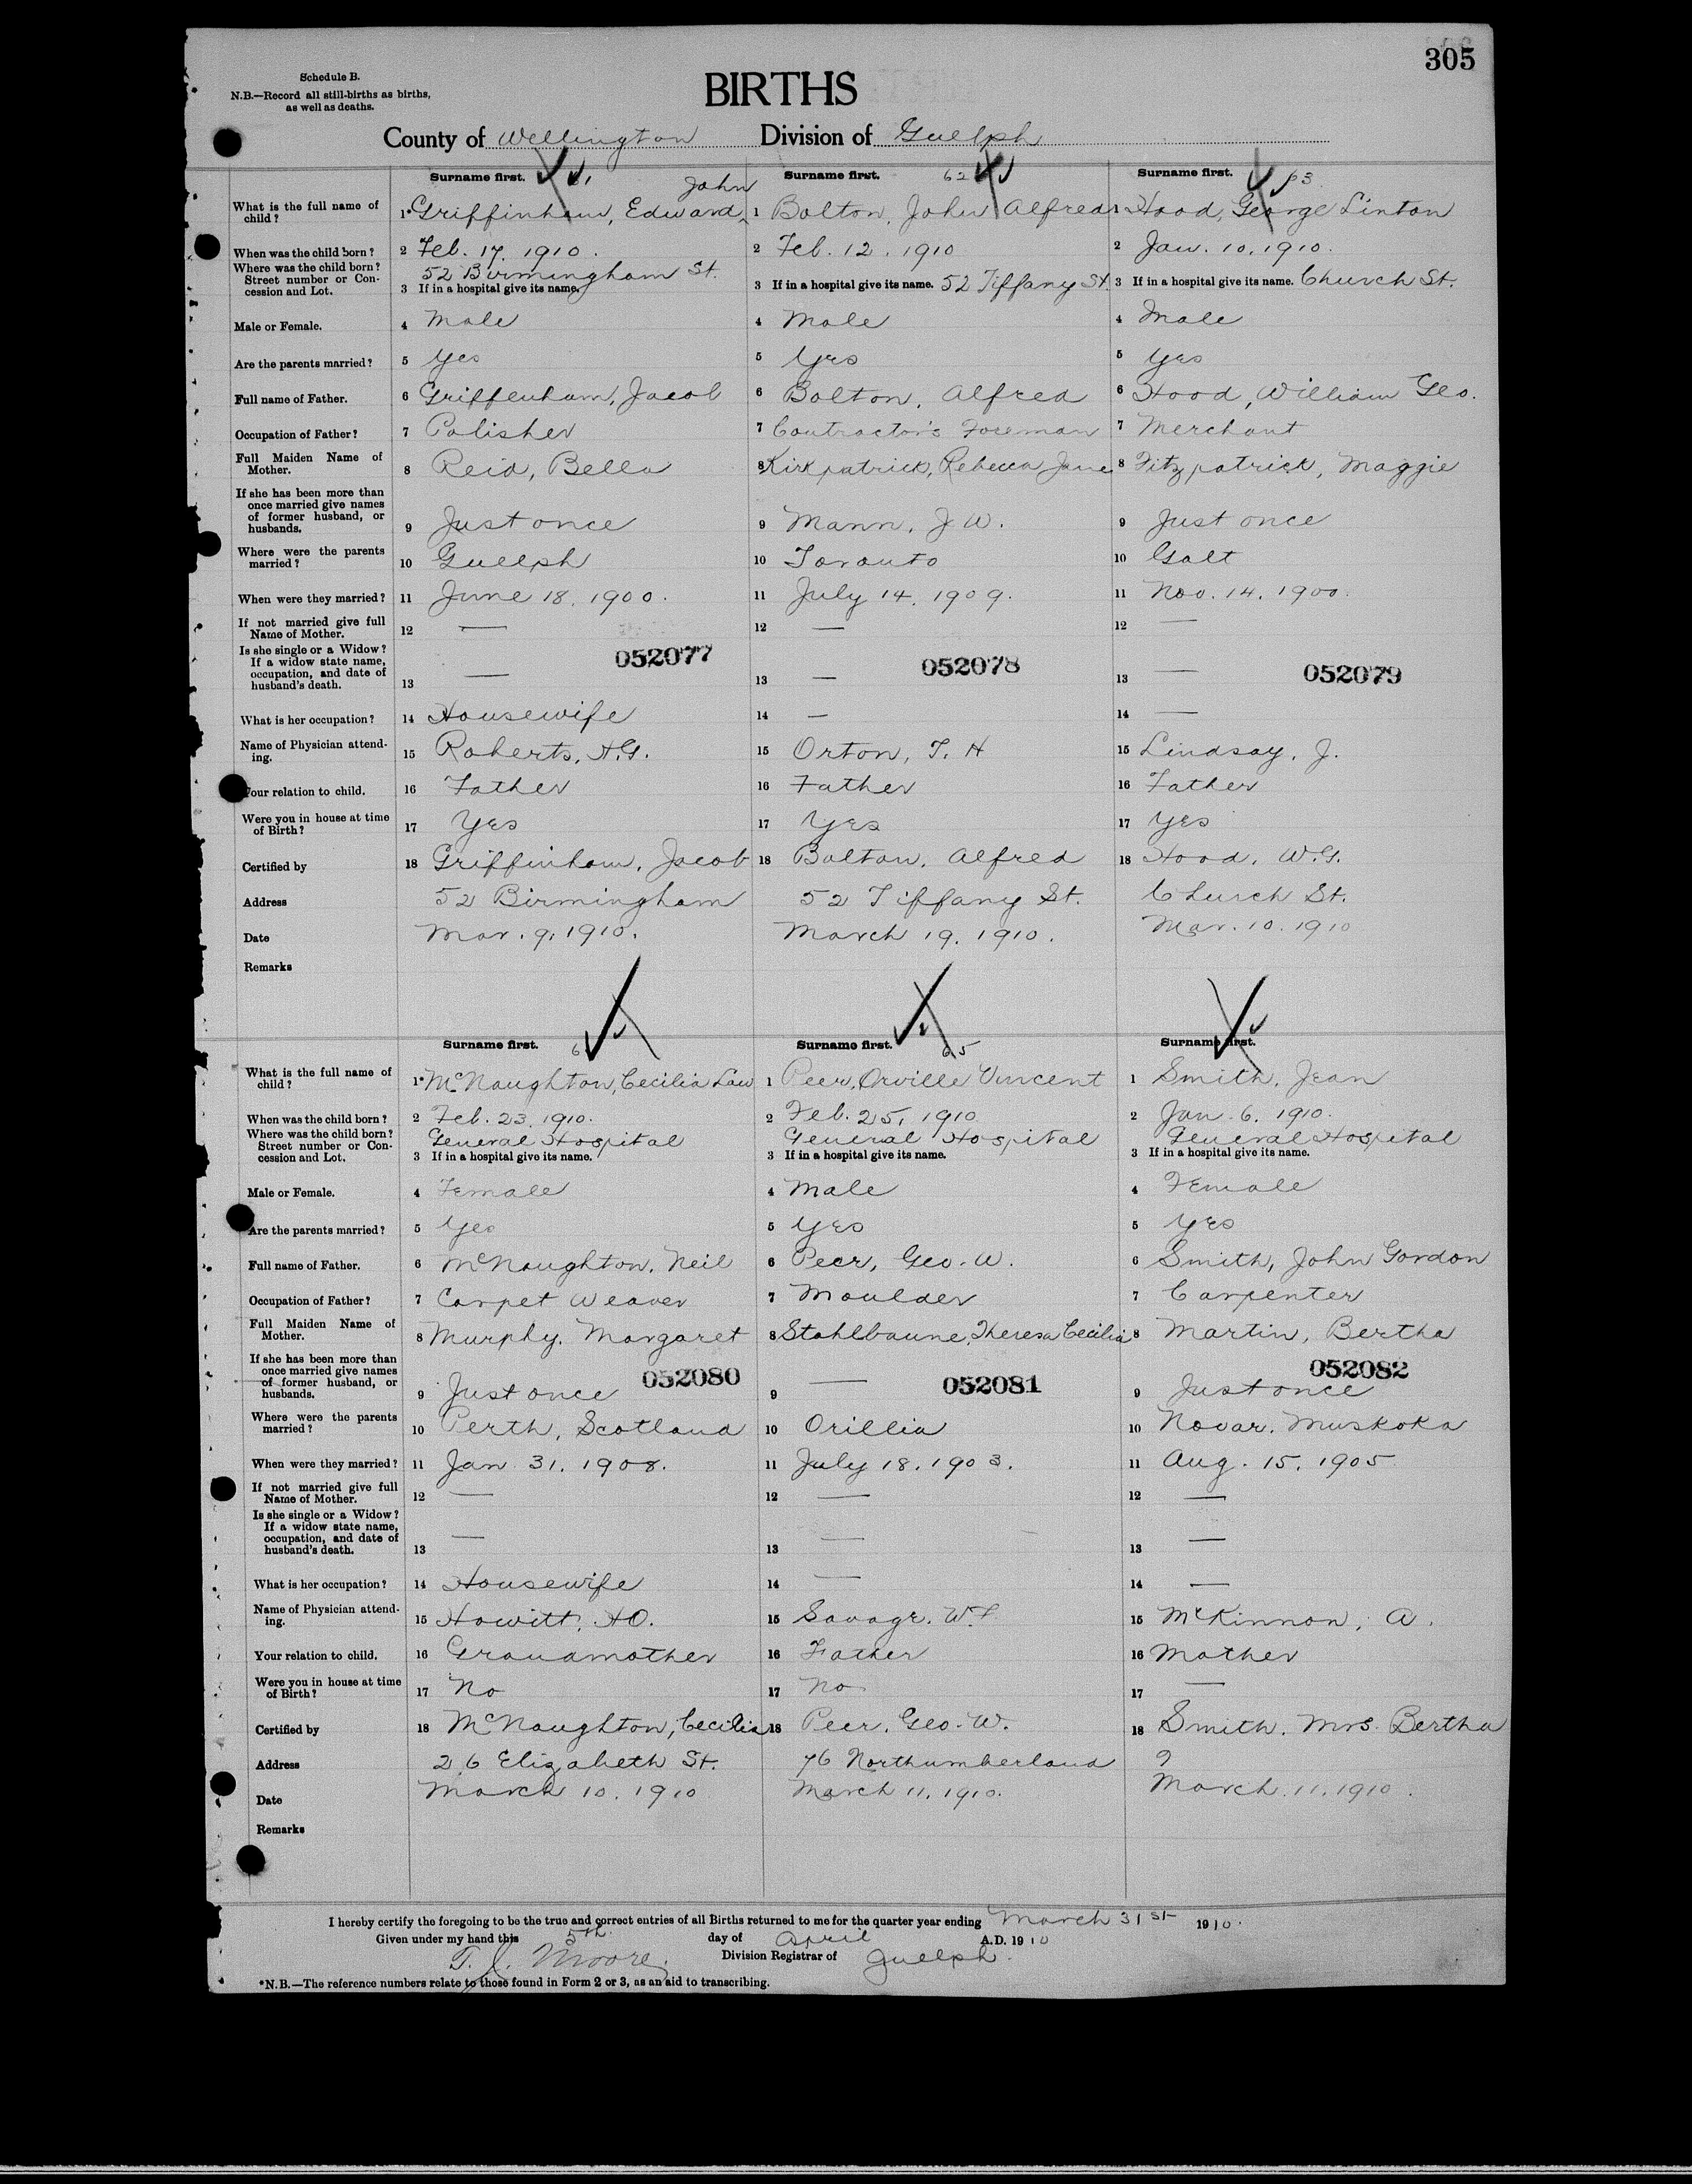 305
Schedule B.
N.B.—Record all still-births as births,
as well as deaths.
BIRTHS
County of Wellington Division of Guelph
Surname first. Surname first. 62 Surname first. 63
John
What is the full name of child? 1* Griffinham, Edward, 1 Bolton, John Alfred 1 Hood, George Linton
When was the child born? 2 Feb. 17. 1910. 2 Feb. 12. 1910 2 Jan. 10. 1910.
Where was the child born? Street number or Concession and Lot. 3 If in a hospital give its name. 52 Birmingham St. 3 If in a hospital give its name. 52 Tiffany St. 3 If in a hospital give its name. Church St.
Male or Female. 4 Male 4 Male 4 Male
Are the parents married? 5 Yes 5 Yes 5 Yes
Full name of Father. 6 Griffenham, Jacob 6 Bolton, Alfred 6 Hood, William Geo.
Occupation of Father? 7 Polisher 7 Contractor's Foreman 7 Merchant
Full Maiden Name of Mother. 8 Reid, Bella 8 Kirkpatrick, Rebecca Jane 8 Fitzpatrick, Maggie
If she has been more than once married give names of former husband, or husbands. 9 Just once 9 Mann, J W. 9 Just once
Where were the parents married? 10 Guelph 10 Toronto 10 Galt
When were they married? 11 June 18. 1900. 11 July 14. 1909. 11 Nov. 14. 1900.
If not married give full Name of Mother. 12 — 12 — 12 —
052077 052078 052079
Is she single or a Widow? If a widow state name, occupation, and date of husband's death. 13 — 13 — 13 —
What is her occupation? 14 Housewife 14 — 14 —
Name of Physician attending. 15 Roberts, H.G. 15 Orton, T. H 15 Lindsay, J.
Your relation to child. 16 Father 16 Father 16 Father
Were you in house at time of Birth? 17 Yes 17 Yes 17 Yes
Certified by 18 Griffinham, Jacob 18 Bolton, Alfred 18 Hood, W.G.
Address 52 Birmingham 52 Tiffany St. Church St.
Date Mar. 9. 1910. March 19. 1910. Mar. 10. 1910
Remarks
Surname first. Surname first. 65 Surname first.
What is the full name of child? 1* McNaughton, Cecilia Law 1 Peer, Orville Vincent 1 Smith, Jean
When was the child born? 2 Feb. 23. 1910. 2 Feb. 25, 1910 2 Jan. 6. 1910.
Where was the child born? Street number or Concession and Lot. 3 If in a hospital give its name. General Hospital 3 If in a hospital give its name. General Hospital 3 If in a hospital give its name. General Hospital
Male or Female. 4 Female 4 Male 4 Female
Are the parents married? 5 Yes 5 Yes 5 Yes
Full name of Father. 6 McNaughton, Neil 6 Peer, Geo. W. 6 Smith, John Gordon
Occupation of Father? 7 Carpet Weaver 7 Moulder 7 Carpenter
Full Maiden Name of Mother. 8 Murphy, Margaret 8 Stahlbaune, Theresa Cecilia 8 Martin, Bertha
052080 052081 052082
If she has been more than once married give names of former husband, or husbands. 9 Just once 9 — 9 Just once
Where were the parents married? 10 Perth, Scotland 10 Orillia 10 Novar, Muskoka
When were they married? 11 Jan 31. 1908. 11 July 18. 1903. 11 Aug. 15. 1905
If not married give full Name of Mother. 12 — 12 — 12 —
Is she single or a Widow? If a widow state name, occupation, and date of husband's death. 13 — 13 — 13 —
What is her occupation? 14 Housewife 14 — 14 —
Name of Physician attending. 15 Howitt, H.O. 15 Savage, W.F. 15 McKinnon, A.
Your relation to child. 16 Grandmother 16 Father 16 Mother
Were you in house at time of Birth? 17 No 17 No 17 —
Certified by 18 McNaughton, Cecilia 18 Peer, Geo. W. 18 Smith, Mrs. Bertha
Address 26 Elizabeth St. 76 Northumberland ?
Date March 10. 1910 March 11. 1910. March. 11. 1910.
Remarks
I hereby certify the foregoing to be the true and correct entries of all Births returned to me for the quarter year ending March 31st 1910.
Given under my hand this 5th day of April A.D. 1910
T. J. Moore Division Registrar of Guelph
*N.B.—The reference numbers relate to those found in Form 2 or 3, as an aid to transcribing.